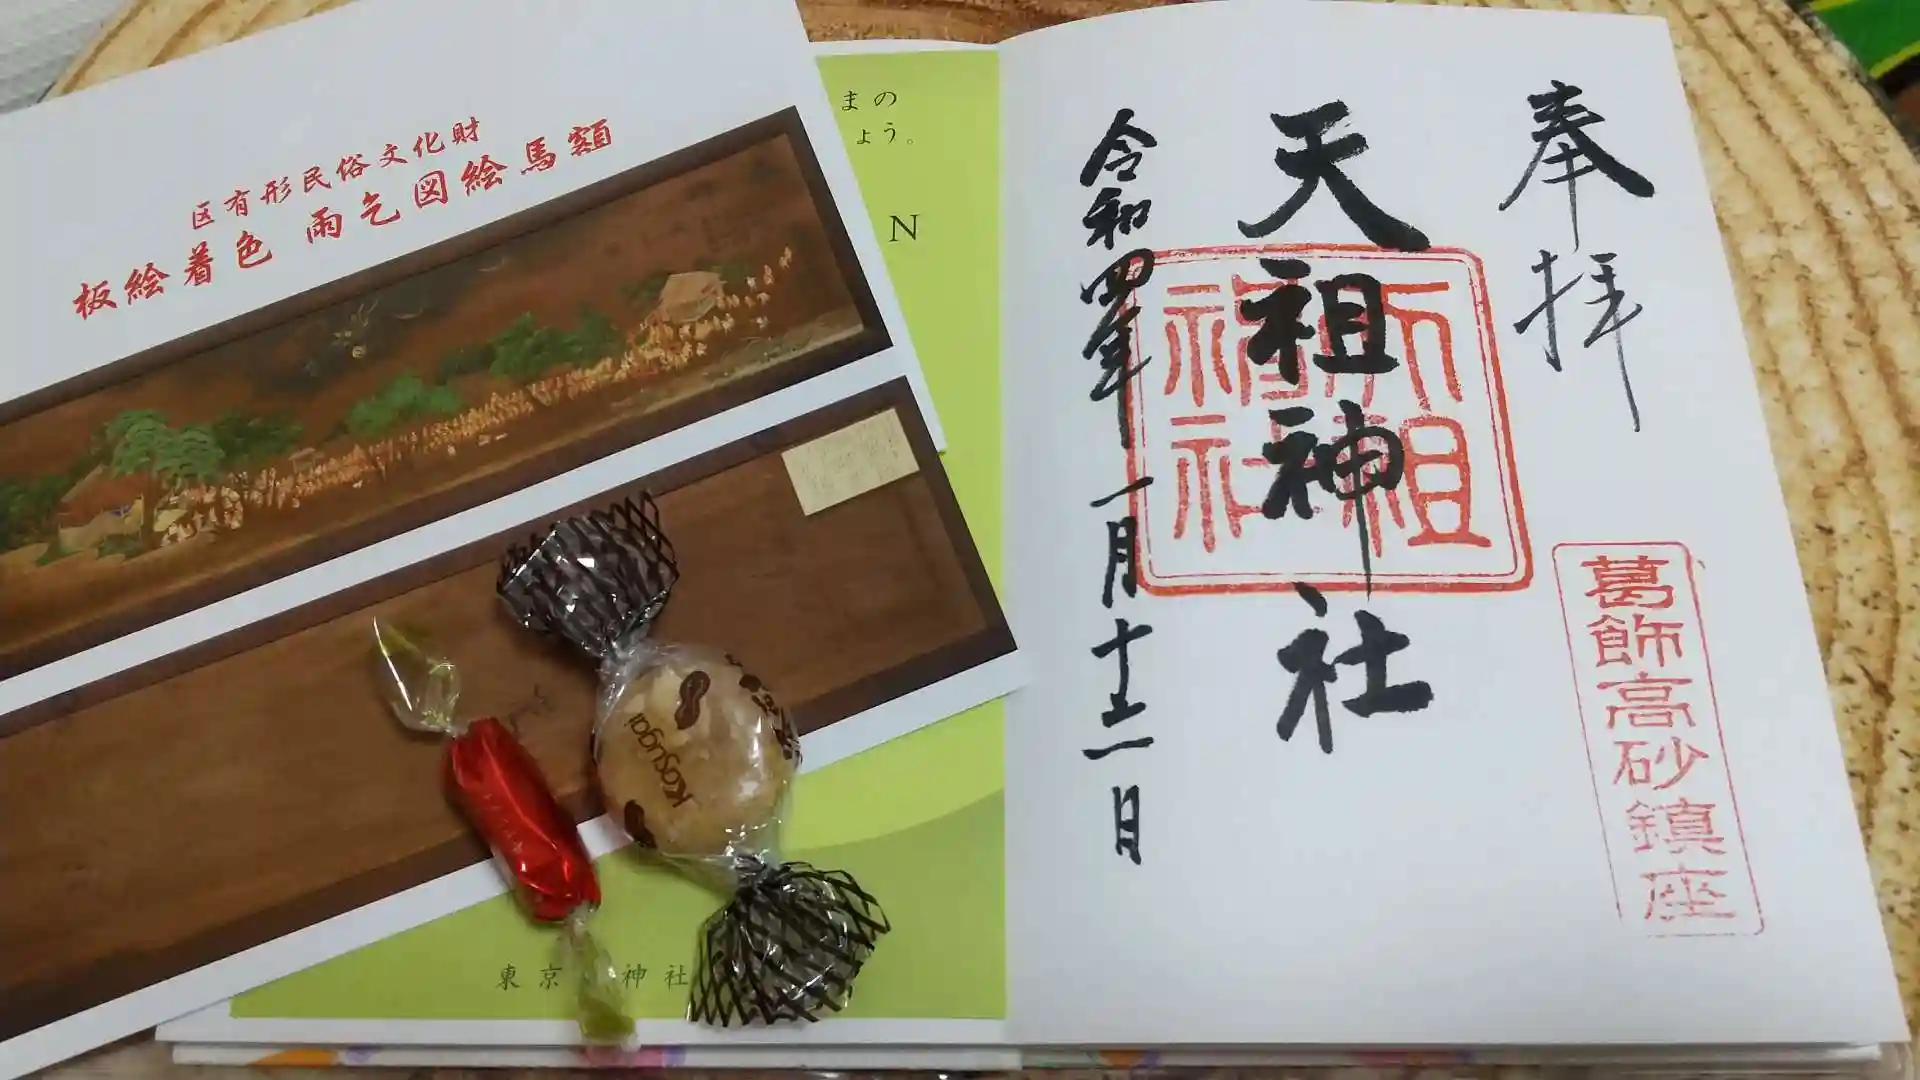 区有形民俗文化財
板絵着色 雨乞図絵馬額
まの
ょう。
N
Kosugai
東京 神社
奉拝
天祖神社
令和四年一月十二日
葛飾高砂鎮座